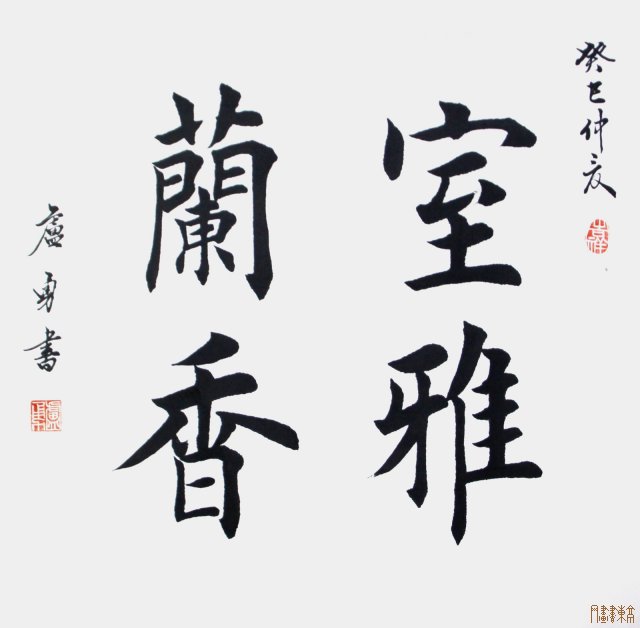 癸巳仲夏
室雅
蘭香
盧勇書